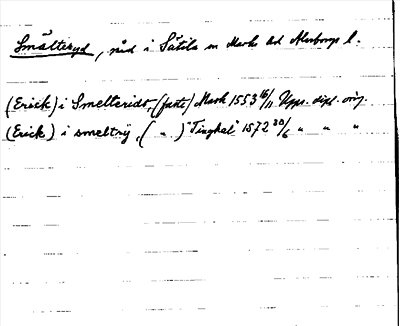 Smälteryd, näd i Sätila sn Marks hd Älvsborgs l.
(Erick) i Smelteridt, (faste) Mark 1553 16/11 Upps. dipl. orig.
(Erick) i smeltrÿ, ( " ) "Tingkal" 1572 30/6 " " "